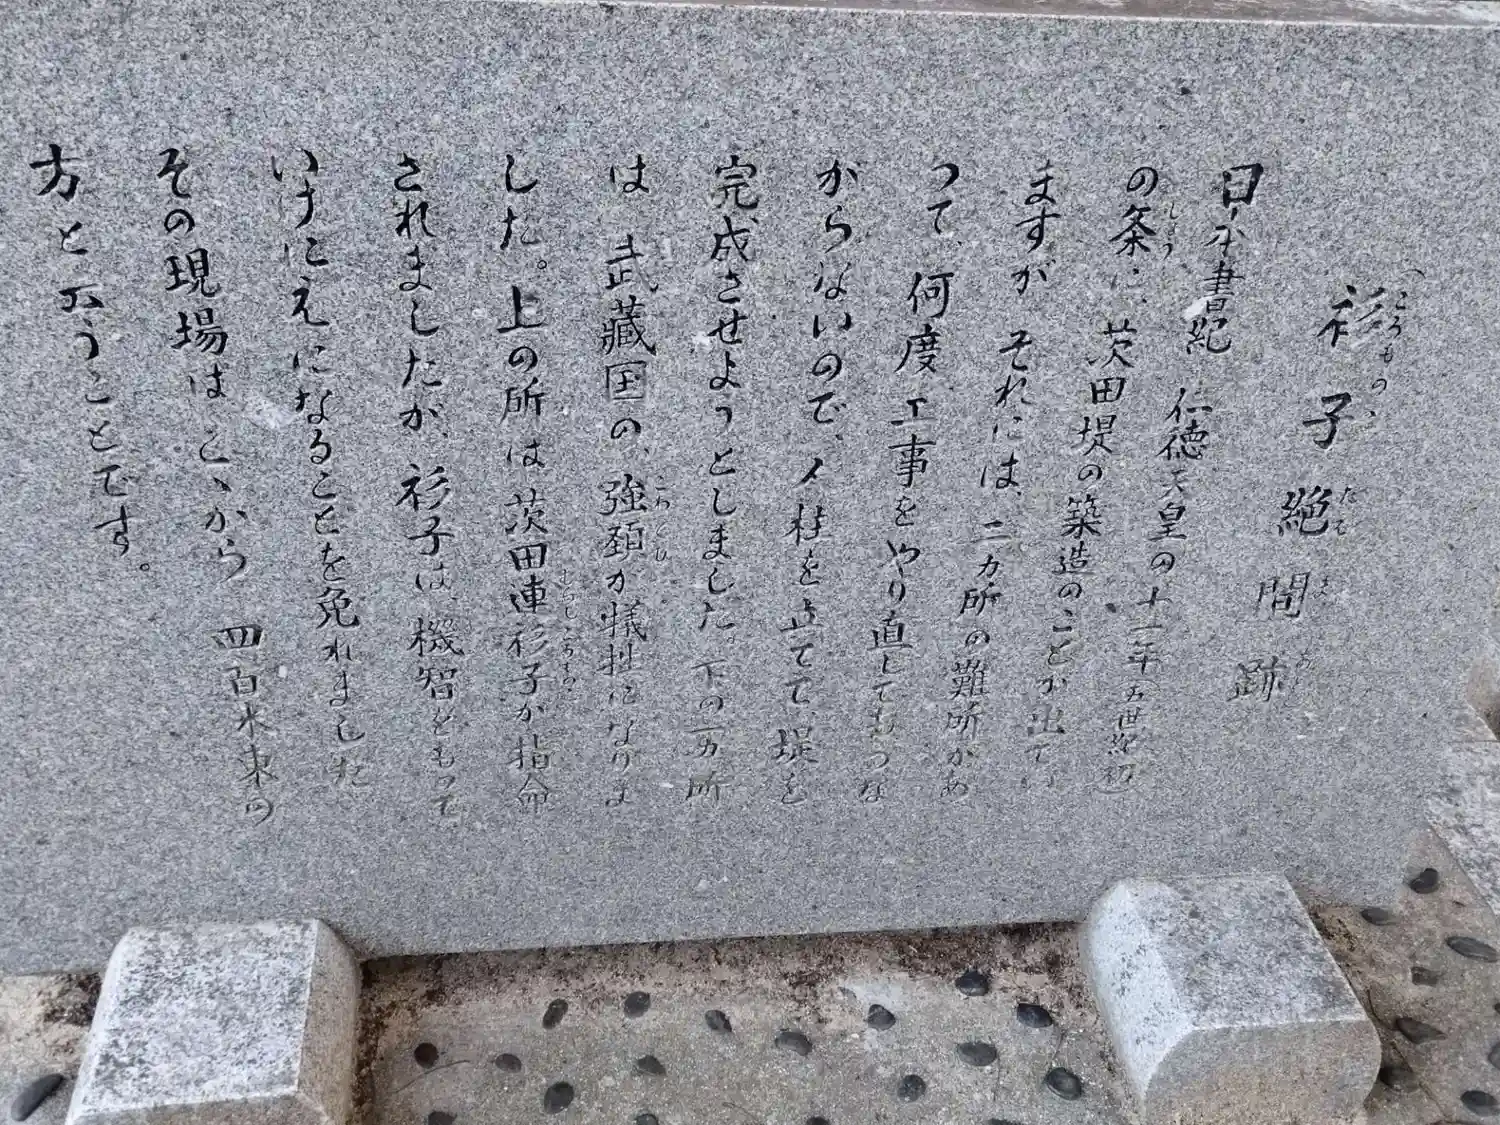 衫子絶間跡
日本書紀 仁徳天皇の十一年(五世紀初)
の条に、茨田堤の築造のことが出てい
ますが それには、二カ所の難所があ
って、何度工事をやり直してもつな
がらないので、人柱を立てて、堤を
完成させようとしました。下の一カ所
は 武蔵国の、強頚が犠牲になりま
した。上の所は茨田連衫子が指命
されましたが、衫子は、機智をもって、
いけにえになることを免れました
その現場はこゝから 四百米東の
方と云うことです。